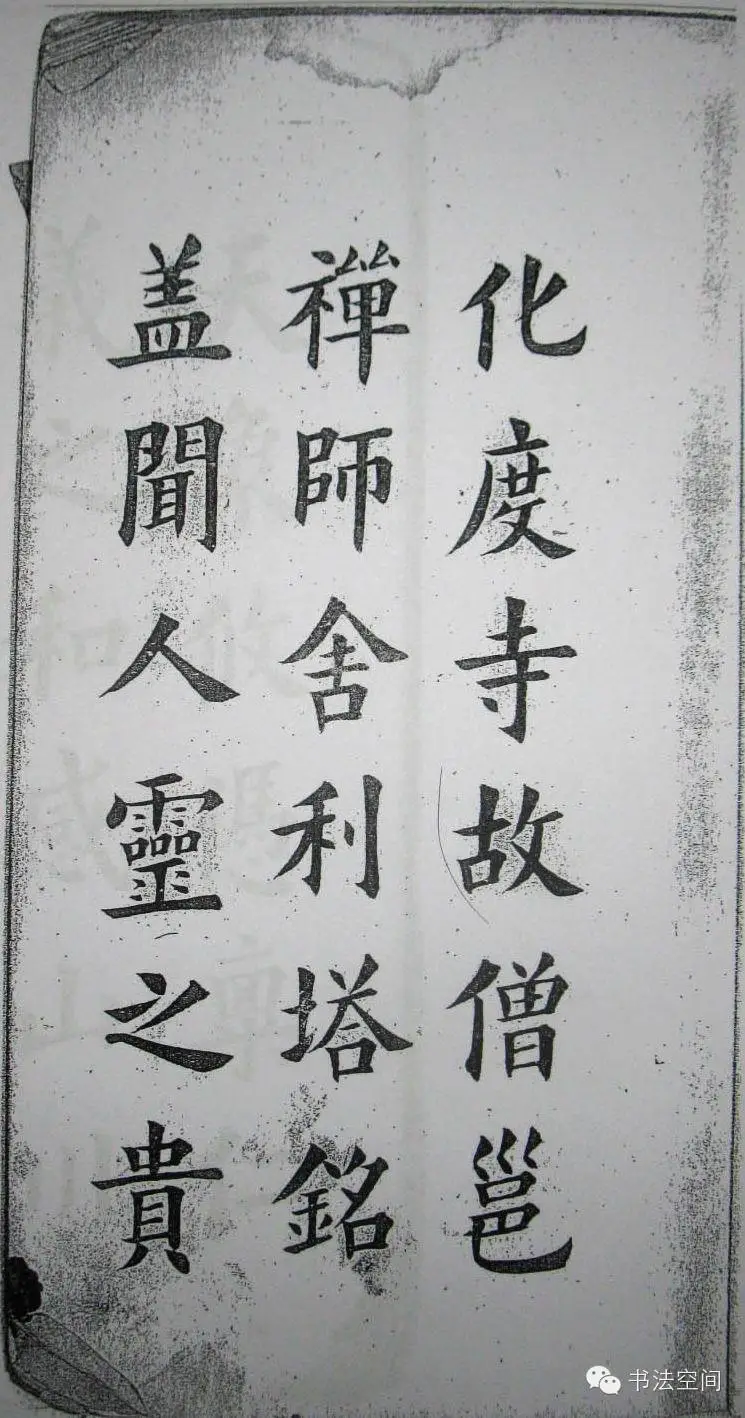 化度寺故僧邕
禪師舍利塔銘
盖聞人靈之貴
书法空间